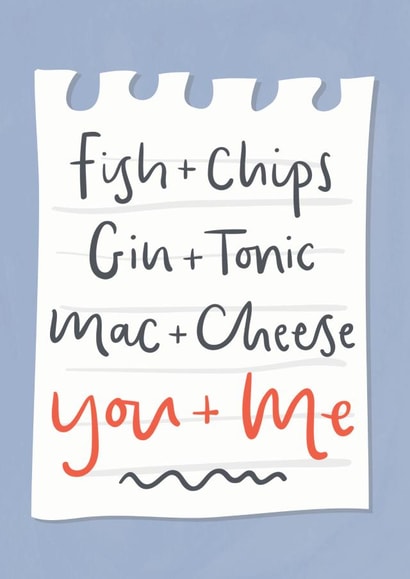 Fish + Chips
Gin + Tonic
Mac + Cheese
you + Me